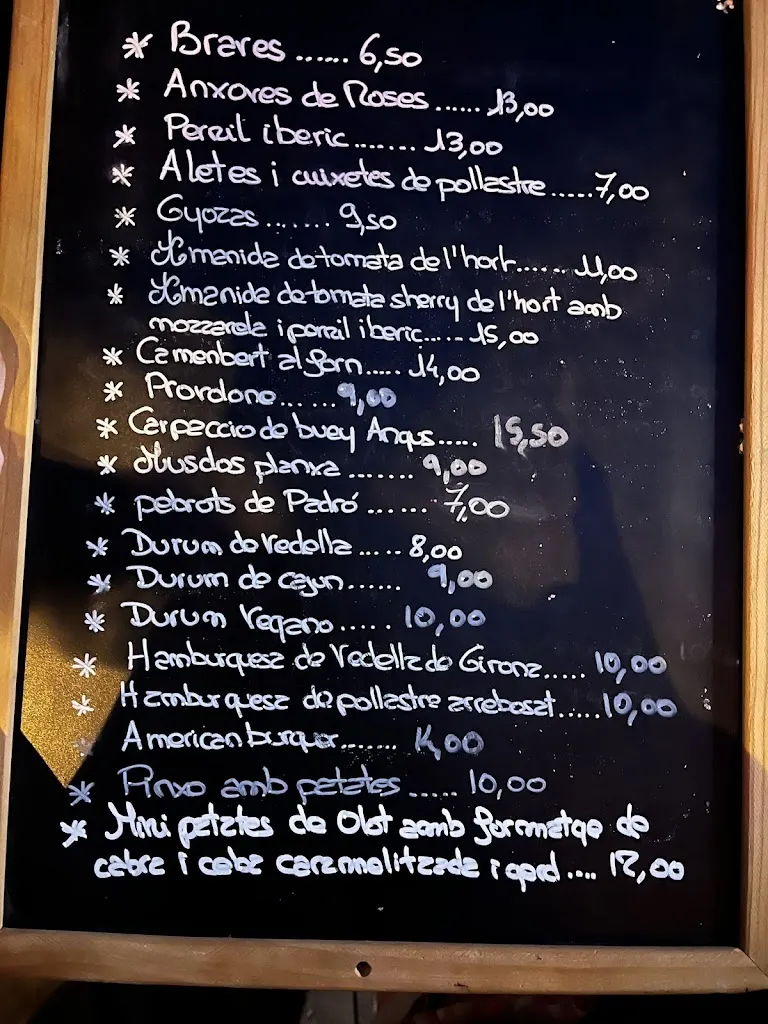 * Braves ...... 6,50
* Anxoves de Roses ...... 13,00
* Pernil iberic ....... 13,00
* Aletes i cuixetes de pollastre ..... 7,00
* Gyozas ....... 9,50
* Amanida de tomata de l'hort ...... 11,00
* Amanida de tomata sherry de l'hort amb
mozzarela i pernil iberic ...... 15,00
* Camenbert al forn ..... 14,00
* Provolone ....... 9,00
* Carpaccio de buey Angus ..... 15,50
* Musclos planxa ....... 9,00
* pebrots de Padró ...... 7,00
* Durum de vedella ..... 8,00
* Durum de cajun ...... 9,00
* Durum Vegano ..... 10,00
* Hamburquesa de Vedella de Girona ..... 10,00
* Hamburquesa de pollastre arrebosat ..... 10,00
* American burquer ....... ,00
* Pinxo amb patates ..... 10,00
* Mini patates de Olot amb formatge de
cabra i ceba caramelitzada i .... 12,00